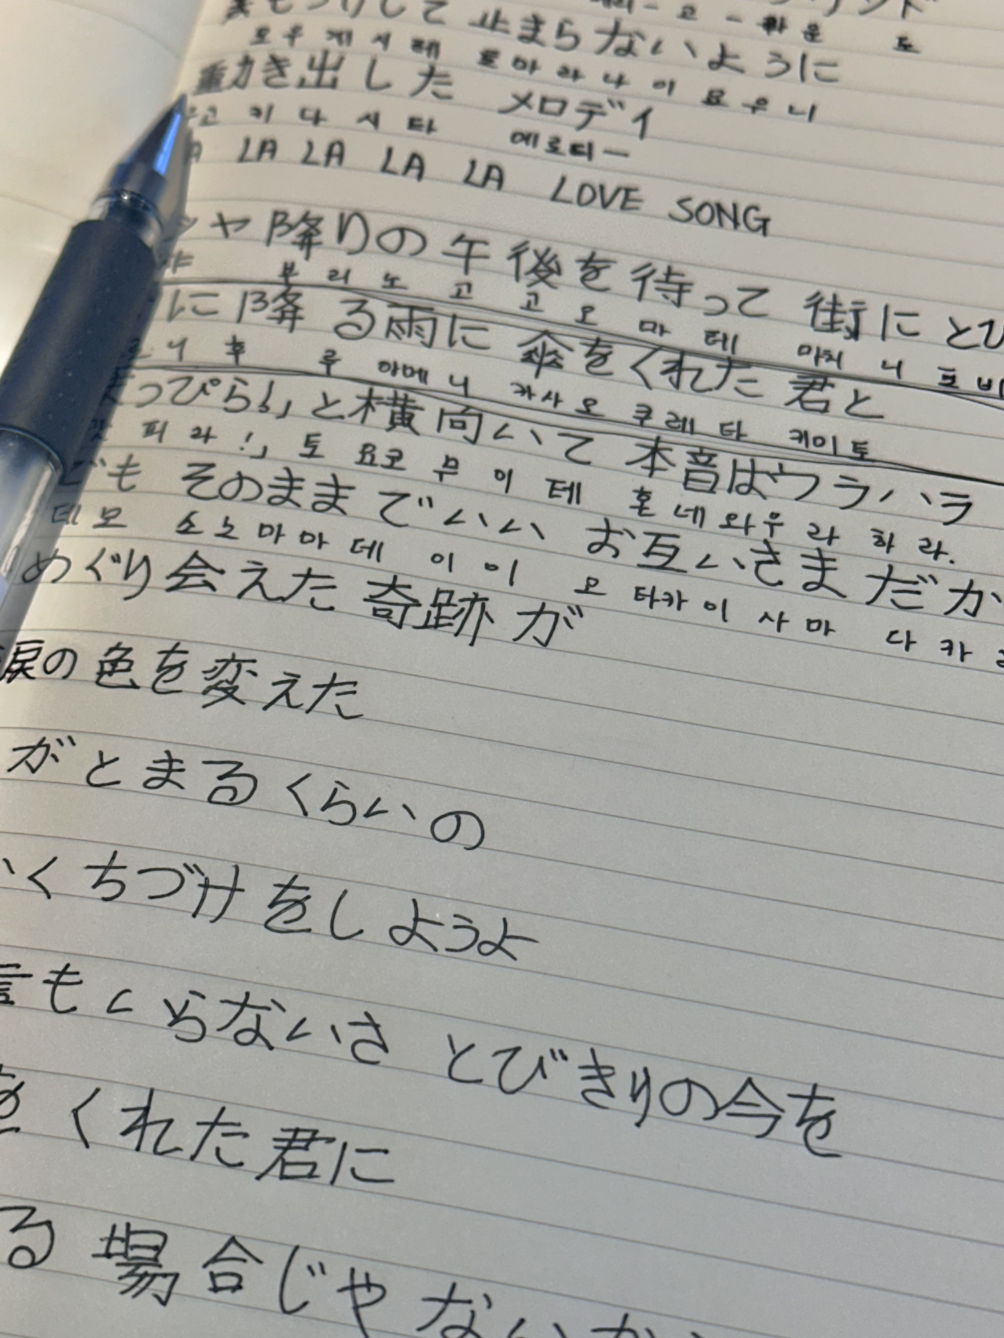 止まらないように
오우케시테 토마라나이 요우니
動き出した メロディ
고 키 다 시 타 메로디ー
LA LA LA LA LOVE SONG
シャ降りの午後を待って 街に とび
부 리 노 고 고 오 마 테 마치 니 토비
に降る雨に 傘をくれた 君と
니 후 루 아메 니 카사 오 쿠레 타 키미토
っぴら!」と横向いて 本音はウラハラ
피 라 !」 토 요코 무 이 테 혼 네 와우 라 하 라.
でも そのままでいい お互いさまだか
데모 소노 마마 데 이 이 오 타카 이 사 마 다 카 라
めぐり会えた奇跡が
涙の色を変えた
がとまるくらいの
くちづけをしようよ
言もいらないさ とびきりの今を
をくれた君に
る場合じゃない